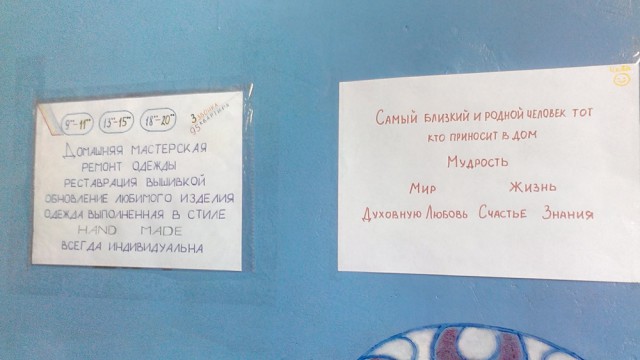 ДОМАШНЯЯ МАСТЕРСКАЯ
РЕМОНТ ОДЕЖДЫ
РЕСТАВРАЦИЯ ВЫШИВКОЙ
ОБНОВЛЕНИЕ ЛЮБИМОГО ИЗДЕЛИЯ
ОДЕЖДА ВЫПОЛНЕННАЯ В СТИЛЕ
HAND MADE
ВСЕГДА ИНДИВИДУАЛЬНА
САМЫЙ БЛИЗКИЙ И РОДНОЙ ЧЕЛОВЕК ТОТ
КТО ПРИНОСИТ В ДОМ
МУДРОСТЬ
МИР ЖИЗНЬ
ДУХОВНУЮ ЛЮБОВЬ СЧАСТЬЕ ЗНАНИЯ